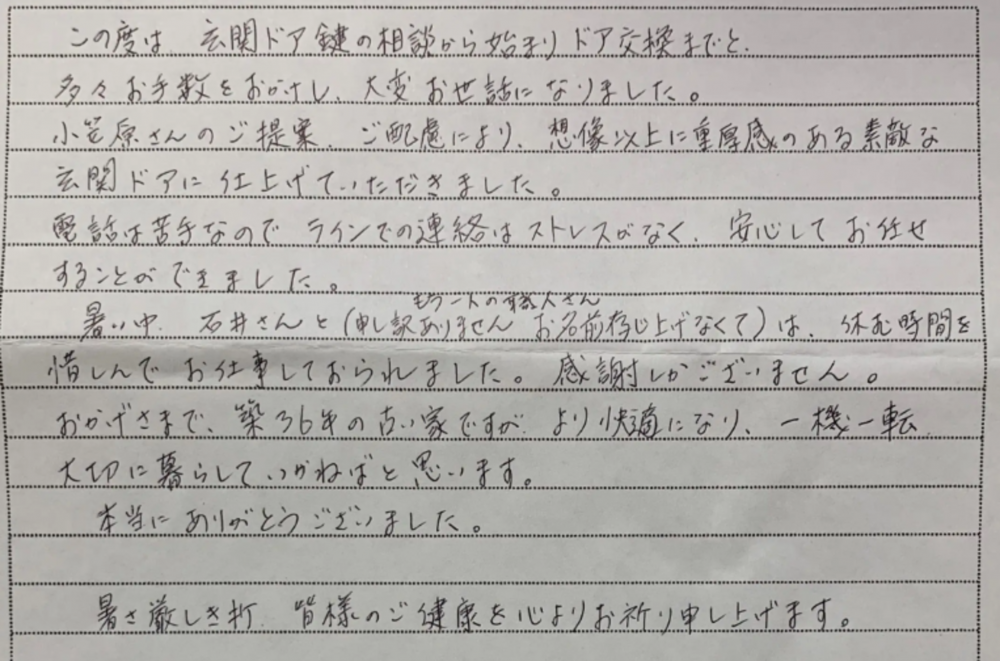 この度は、玄関ドア鍵の相談から始まりドア交換までと、
多々お手数をおかけし、大変お世話になりました。
小笠原さんのご提案、ご配慮により、想像以上に重厚感のある素敵な
玄関ドアに仕上げていただきました。
電話は苦手なので ラインでの連絡はストレスがなく、安心してお任せ
することができました。
もう一人の職人さん
暑い中、石井さんと(申し訳ありません お名前存じ上げなくて)は、休む時間を
惜しんで お仕事しておられました。感謝しかございません。
おかげさまで、築36年の古い家ですが、より快適になり、一機一転、
大切に暮らしていかねばと思います。
本当にありがとうございました。
暑さ厳しき折、皆様のご健康を心よりお祈り申し上げます。